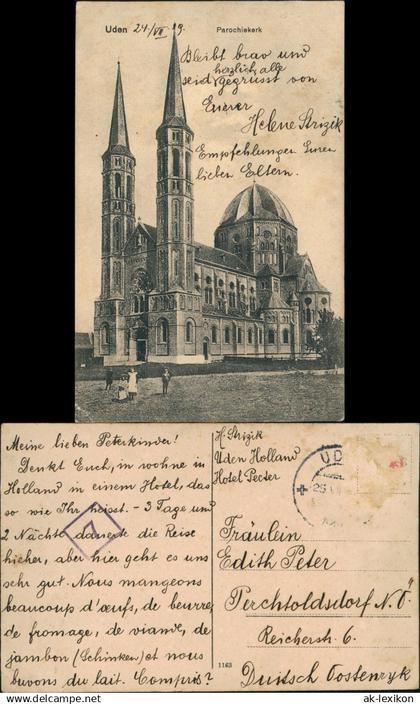 Uden 24/VII 19. Parochiekerk
Bleibt brav und
herzlich alle
seid gegrüsst von
Euerer
Helene Strizik
Empfehlungen Euren
lieben Eltern.
Meine lieben Peterkinder!
Denkt Euch, in wohne in
Holland in einem Hotel, das
so wie Ihr heisst. - 3 Tage und
2 Nächte dauerte die Reise
hieher, aber hier geht es uns
sehr gut. Nous mangeons
beaucoup d'œufs, de beurre,
de fromage, de viande, de
jambon (Schinken) et nous
buvons du lait. Compris?
H. Strizik
Uden Holland
Hotel Peeter
UD
25
Fräulein
Edith Peter
Perchtoldsdorf N.Ö
Reicherstr. 6.
1163
Duitsch Oostenryk
www.ak-ansichtskarten.de
ak-lexikon.com